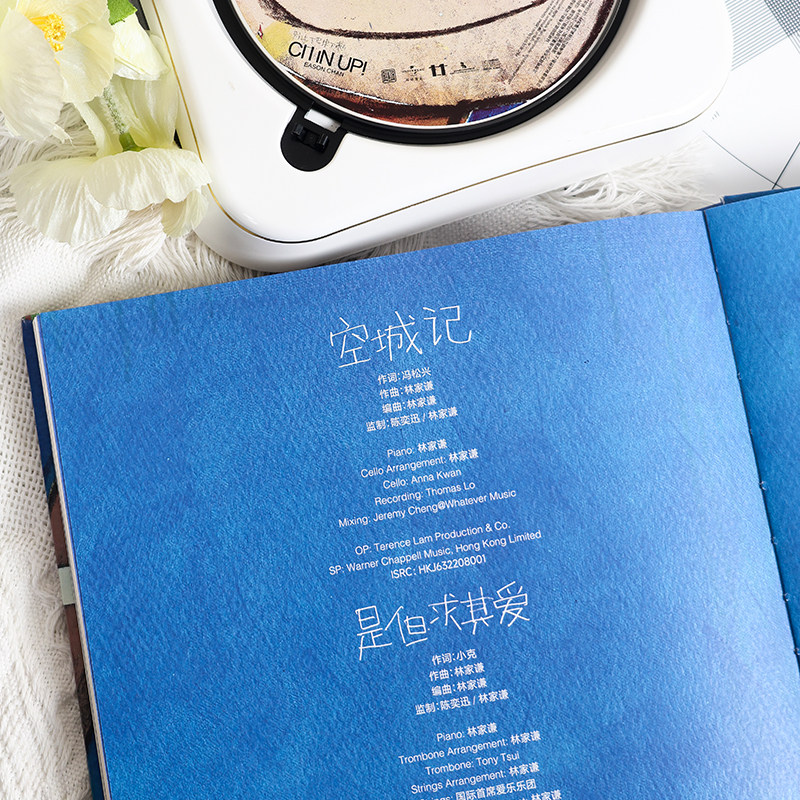 CHIN UP!
EASON CHAN
空城记
作词：冯松兴
作曲：林家谦
编曲：林家谦
监制：陈奕迅 / 林家谦
Piano: 林家谦
Cello Arrangement: 林家谦
Cello: Anna Kwan
Recording: Thomas Lo
Mixing: Jeremy Cheng@Whatever Music
OP: Terence Lam Production & Co.
SP: Warner Chappell Music, Hong Kong Limited
ISRC: HKJ632208001
是但求其爱
作词：小克
作曲：林家谦
编曲：林家谦
监制：陈奕迅 / 林家谦
Piano: 林家谦
Trombone Arrangement: 林家谦
Trombone: Tony Tsui
Strings Arrangement: 林家谦
Strings: 国际首席爱乐乐团
林家谦